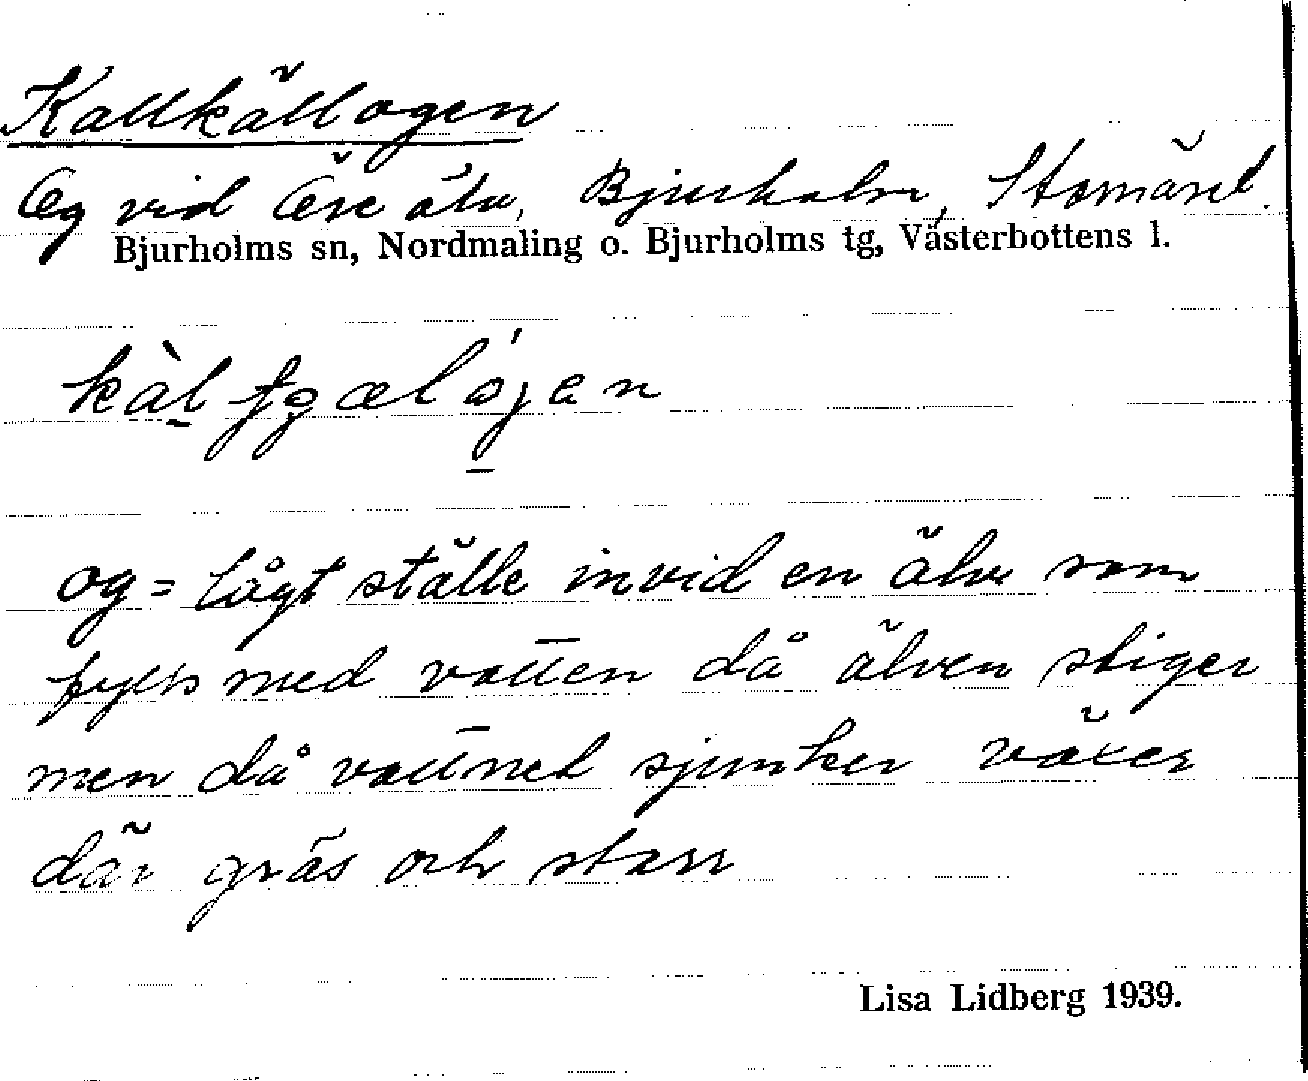 Kallkällogen
Og vid Öre älv, Bjurholm, Stornäset.
Bjurholms sn, Nordmaling o. Bjurholms tg, Västerbottens l.
og = lågt ställe invid en älv som
fylls med vatten då älven stiger
men då vattnet sjunker växer
där gräs och starr
Lisa Lidberg 1939.